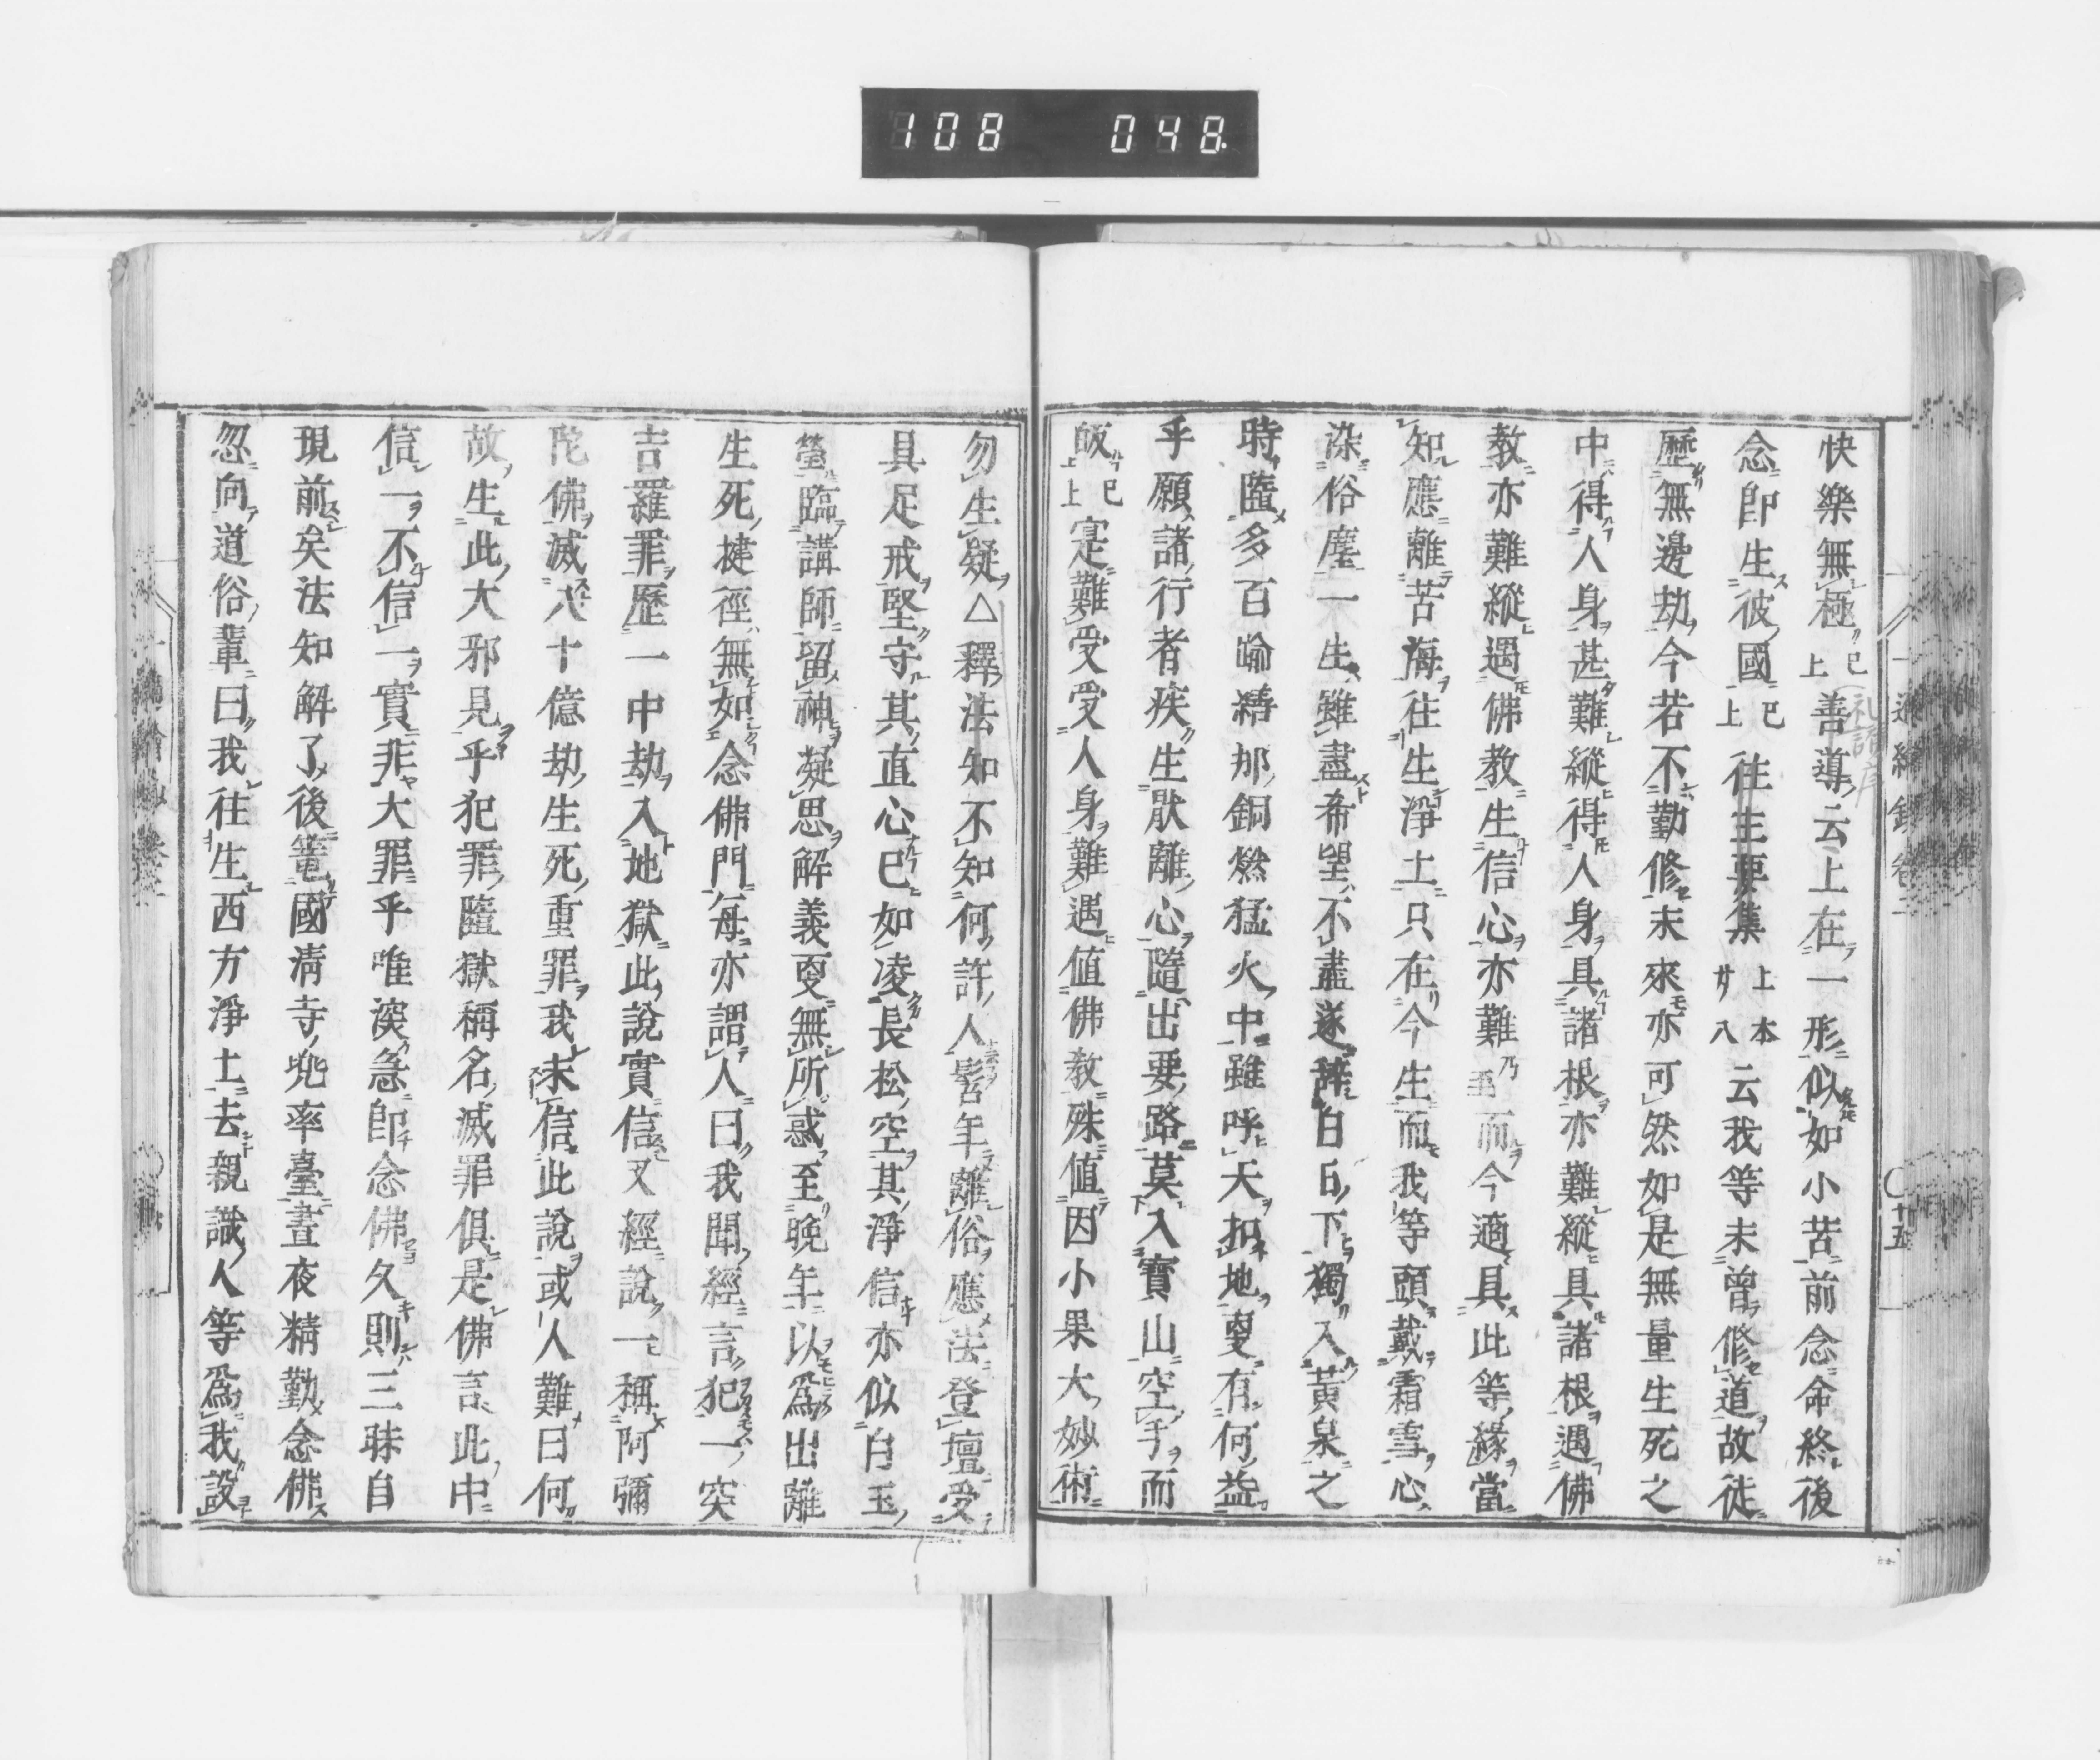 108 048
快樂無極已上善導云上在一形似如小苦前念命終後
念即生彼國已上往生要集上本廿八云我等未曾修道故徒
歷無邊劫今若不勤修未來亦可然如是無量生死之
中得人身甚難縱得人身具諸根亦難縱具諸根遇佛
教亦難縱遇佛教生信心亦難乃至而今適具此等緣當
知應離苦海往生淨土只在今生而我等頭戴霜雪心
染俗塵一生雖盡希望不盡遂辭白日下獨入黃泉之
時墮多百喻繕那洞燃猛火中雖呼天扣地更有何益
乎願諸行者疾生猒離心隨出要路莫入寶山空手而
皈已上上寔難受受人身難遇值佛教殊值因小果大妙術
勿生疑△釋法知不知何許人髫年離俗應法登壇受
具足戒堅守其直心已如凌長松空其淨信亦似白玉
瑩臨講師留神凝思解義更無所惑至晚年以為出離
生死捷徑無如念佛門每亦謂人曰我聞經言犯一突
吉羅罪歷一中劫入地獄此說實信又經說一稱阿彌
陀佛滅八十億劫生死重罪我未信此說或人難曰何
故生此大邪見乎犯罪墮獄稱名滅罪俱是佛言此中
信一不信一實非大罪乎唯須急即念佛久則三昧自
現前矣法知解了後竄國清寺兜率臺晝夜精勤念佛
忽向道俗輩曰我往生西方淨土去親識人等為我設